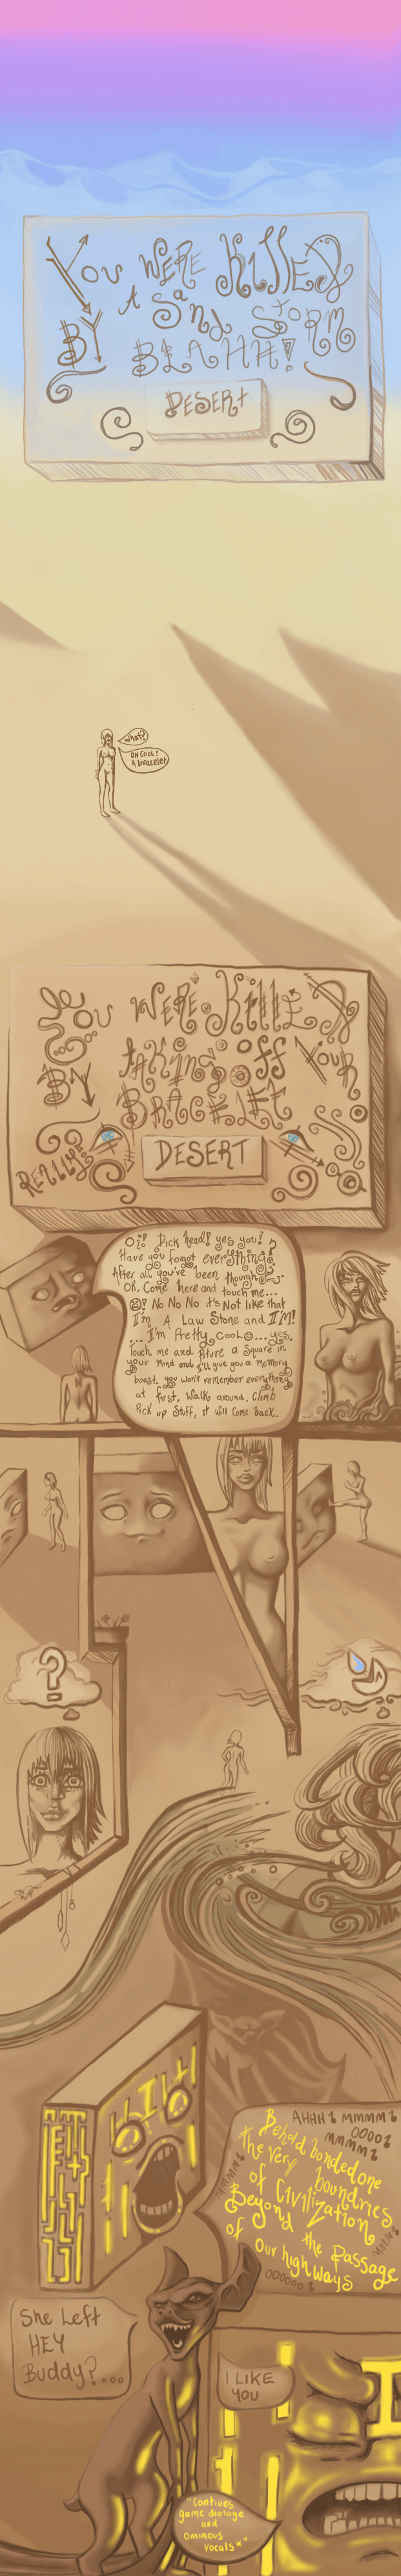 You WERE KillEd
BY A Sand StoRM
BLAHH!
DESERt
What?
OH COOL!
A bracelet
You WERE KillEd
BY tAKING OFF YOUR
BRACELET
REALLY?
DESERT
Oi! Dick head! yes you!
Have you forgot everything?
After all you've been though
OK, Come here and touch me...
! No No No it's Not like that
I'm A Law Stone and I'M!
... I'm Pretty Cool ... yes,
Touch me and Piture a Square in
your Mind and I'll give you a Memory
boost. you won't remember everything
at first, Walk around, Climb
Pick up Stuff, it Will Come back..
?
AHHH MMMM
OOOO
MMMM
Behold bondedone
the very boundries
of Civilization
Beyond the Passage
of Our high ways
MMMM
MMM
OOOOOO
She Left
HEY
Buddy?...
I LIKE
YOU
"Contiues
game diologe
and
Ominous
Vocals*"